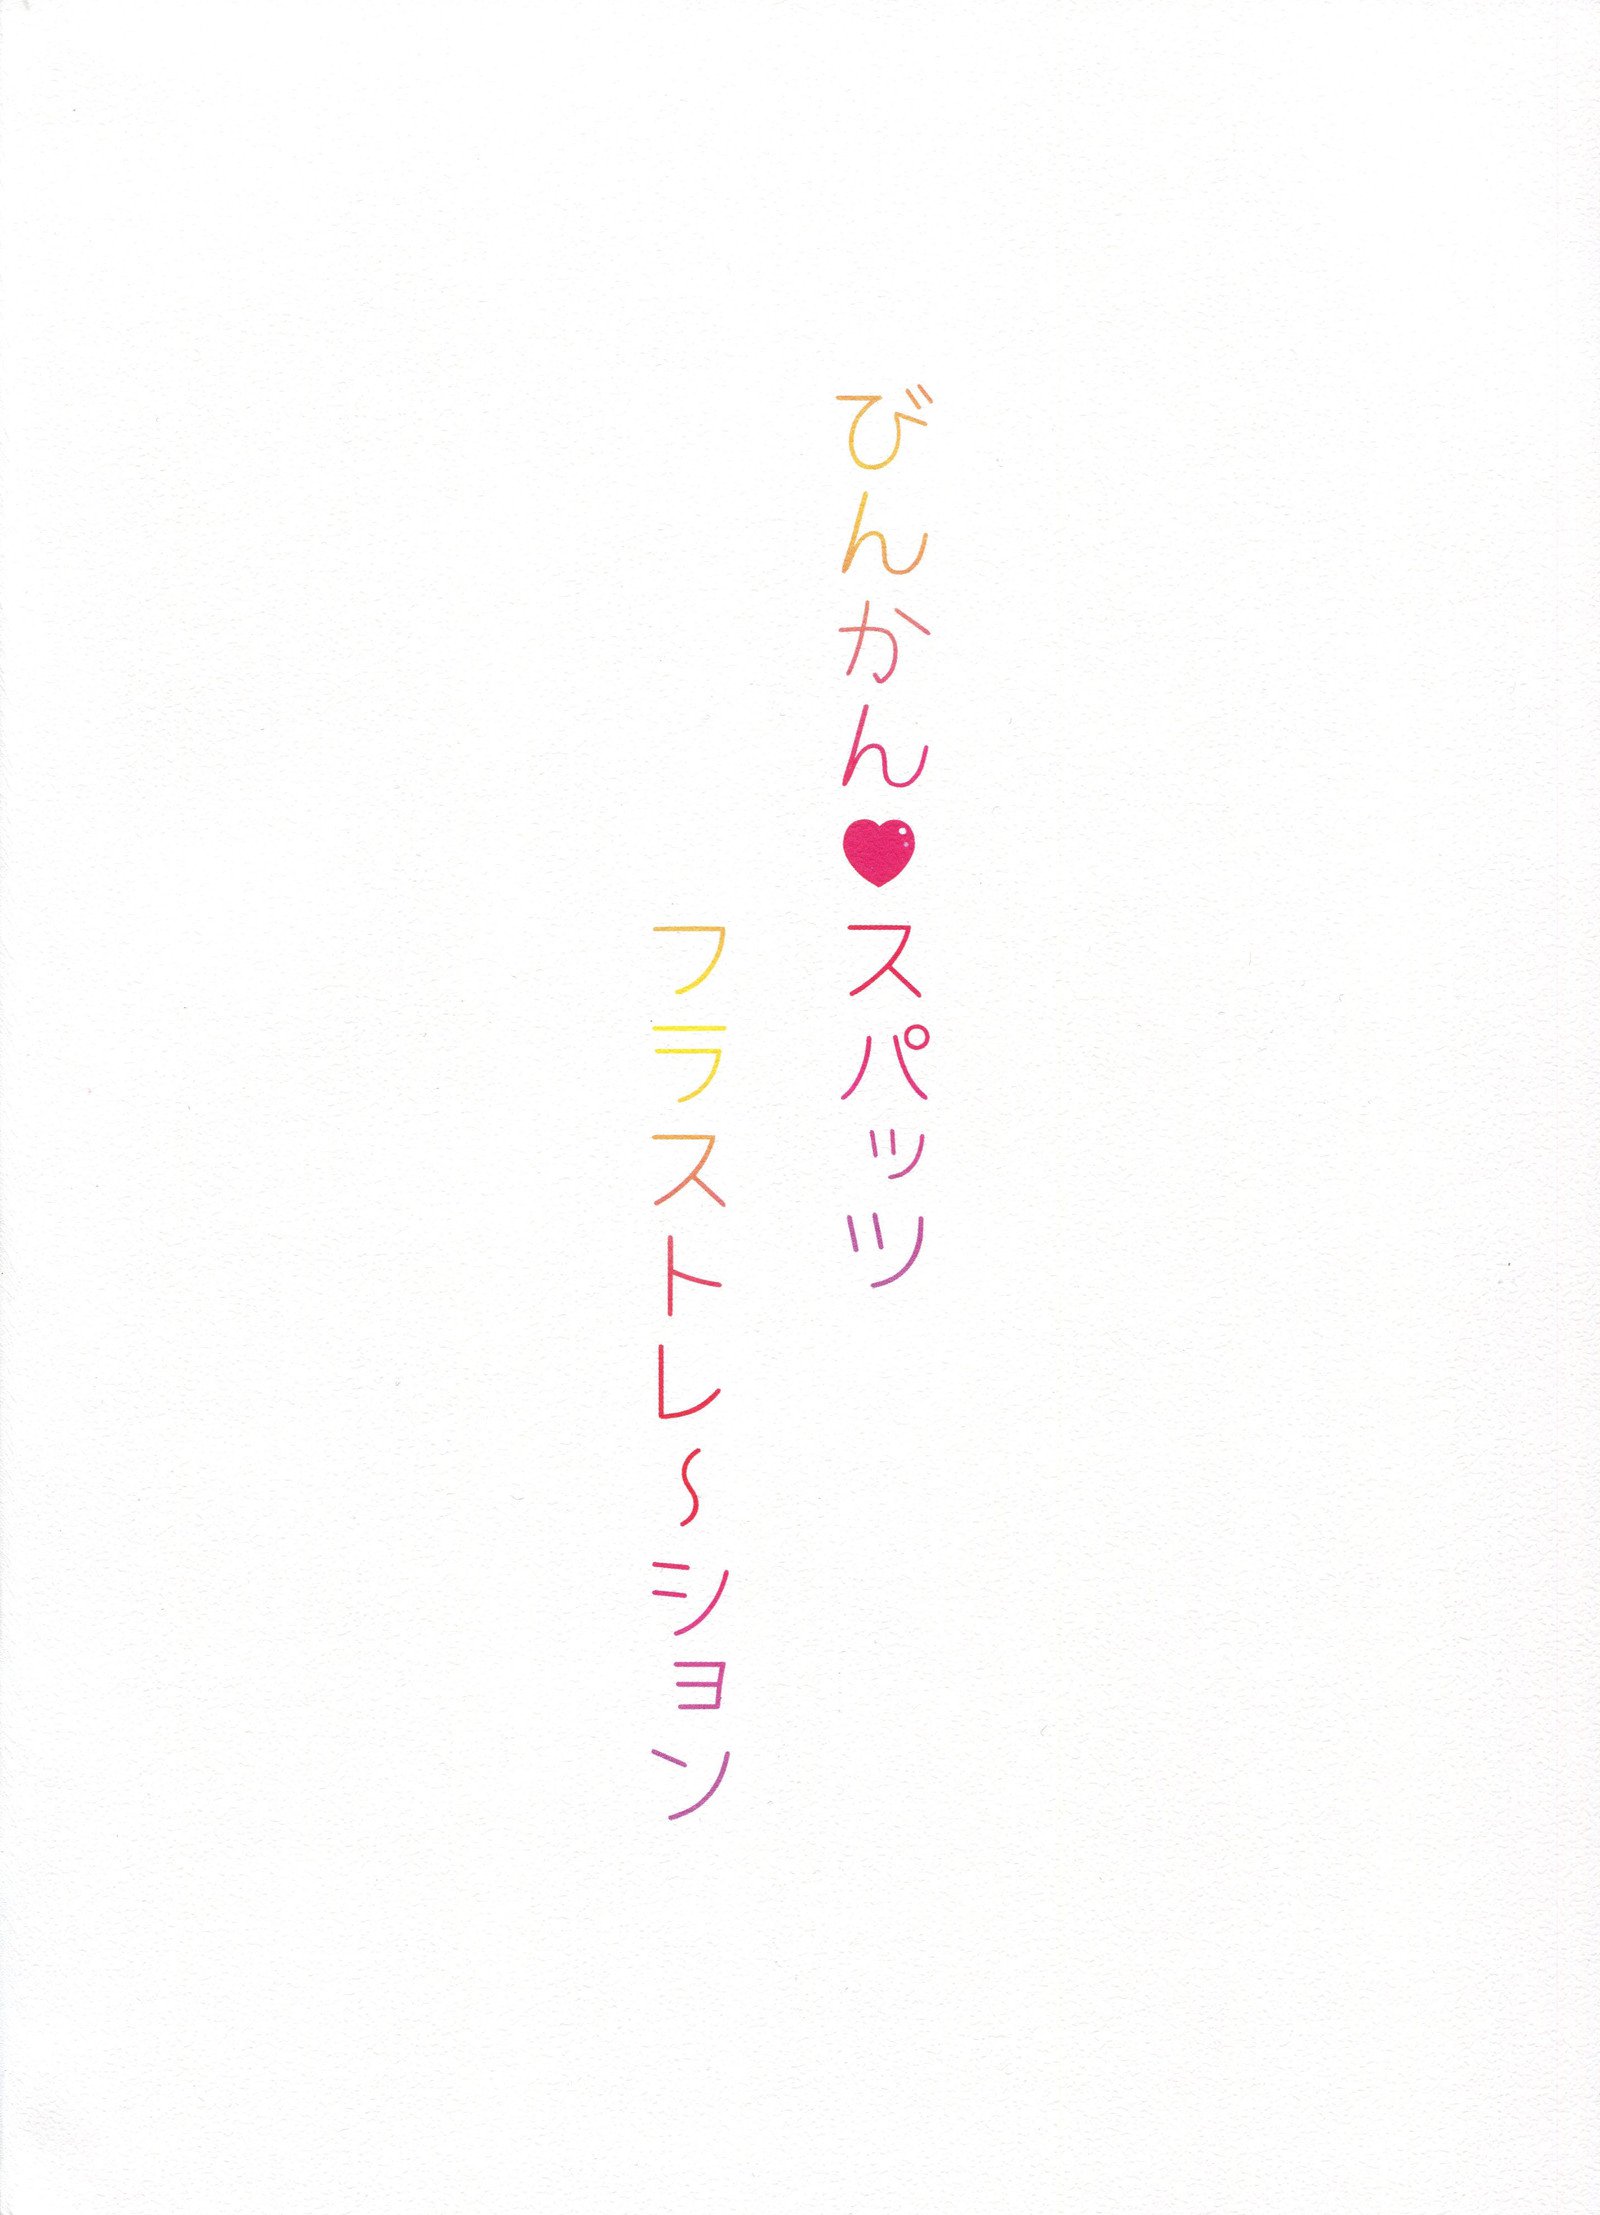 びんかん♥スパッツ
フラストレ〜ション